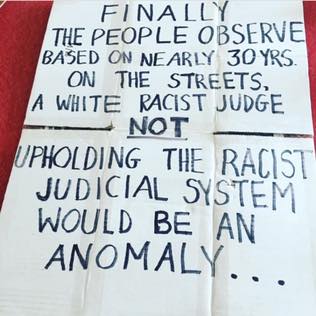 FINALLY
THE PEOPLE OBSERVE
BASED ON NEARLY 30 YRS.
ON THE STREETS,
A WHITE RACIST JUDGE
NOT
UPHOLDING THE RACIST
JUDICIAL SYSTEM
WOULD BE AN
ANOMALY...